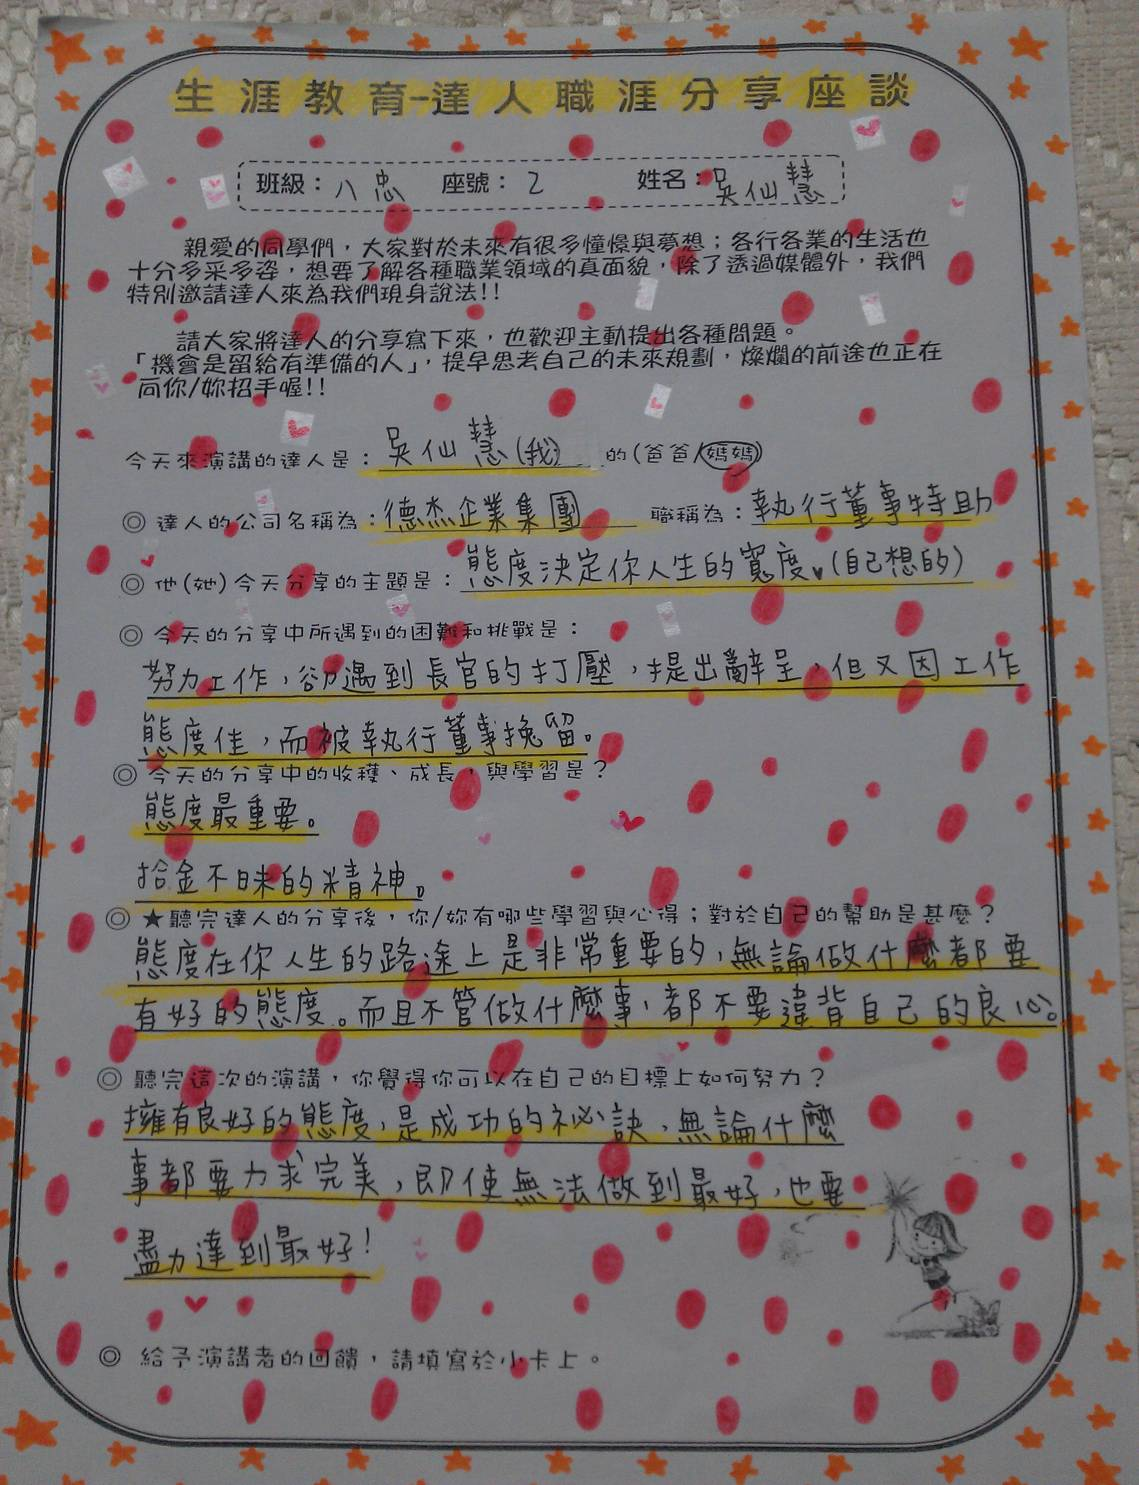 生涯教育-達人職涯分享座談
班級：八忠 座號：2 姓名：吳仙慧
親愛的同學們，大家對於未來有很多憧憬與夢想；各行各業的生活也
十分多采多姿，想要了解各種職業領域的真面貌，除了透過媒體外，我們
特別邀請達人來為我們現身說法!!
請大家將達人的分享寫下來，也歡迎主動提出各種問題。
「機會是留給有準備的人」，提早思考自己的未來規劃，燦爛的前途也正在
向你/妳招手喔!!
今天來演講的達人是：吳仙慧(我) 的(爸爸/媽媽)
◎ 達人的公司名稱為：德杰企業集團 職稱為：執行董事特助
◎ 他(她)今天分享的主題是：態度決定你人生的寬度♥(自己想的)
◎ 今天的分享中所遇到的困難和挑戰是：
努力工作，卻遇到長官的打壓，提出辭呈，但又因工作
態度佳，而被執行董事挽留。
◎ 今天的分享中的收穫、成長，與學習是？
態度最重要。
拾金不昧的精神。
◎ ★聽完達人的分享後，你/妳有哪些學習與心得；對於自己的幫助是甚麼？
態度在你人生的路途上是非常重要的，無論做什麼都要
有好的態度。而且不管做什麼事，都不要違背自己的良心。
◎ 聽完這次的演講，你覺得你可以在自己的目標上如何努力？
擁有良好的態度，是成功的祕訣，無論什麼
事都要力求完美，即使無法做到最好，也要
盡力達到最好！
◎ 給予演講者的回饋，請填寫於小卡上。